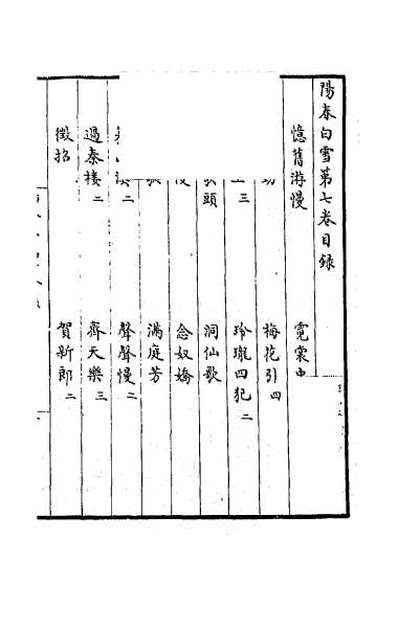 陽春白雪第七卷目録
憶舊游慢 霓裳中
梅花引四
三 玲瓏四犯二
頭 洞仙歌
念奴嬌
滿庭芳
二 聲聲慢二
過秦樓二 齊天樂三
徵招 賀新郎二